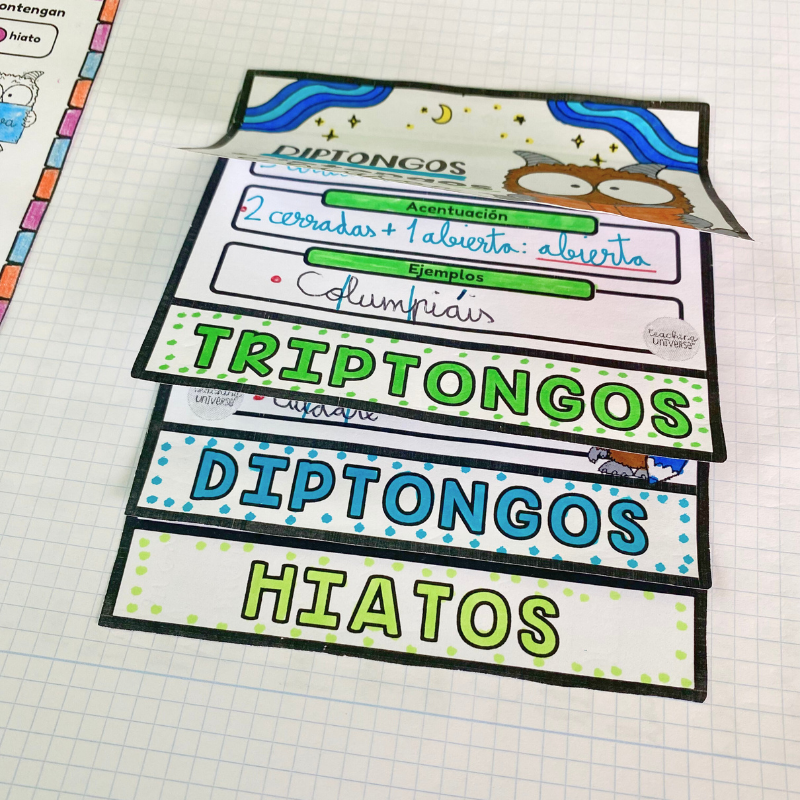 ontengan
hiato
DIPTONGOS
Acentuación
2 cerradas + 1 abierta: abierta
Ejemplos
• Columpiáis
teaching
UNIVERSE
TRIPTONGOS
teaching
UNIVERSE
DIPTONGOS
HIATOS